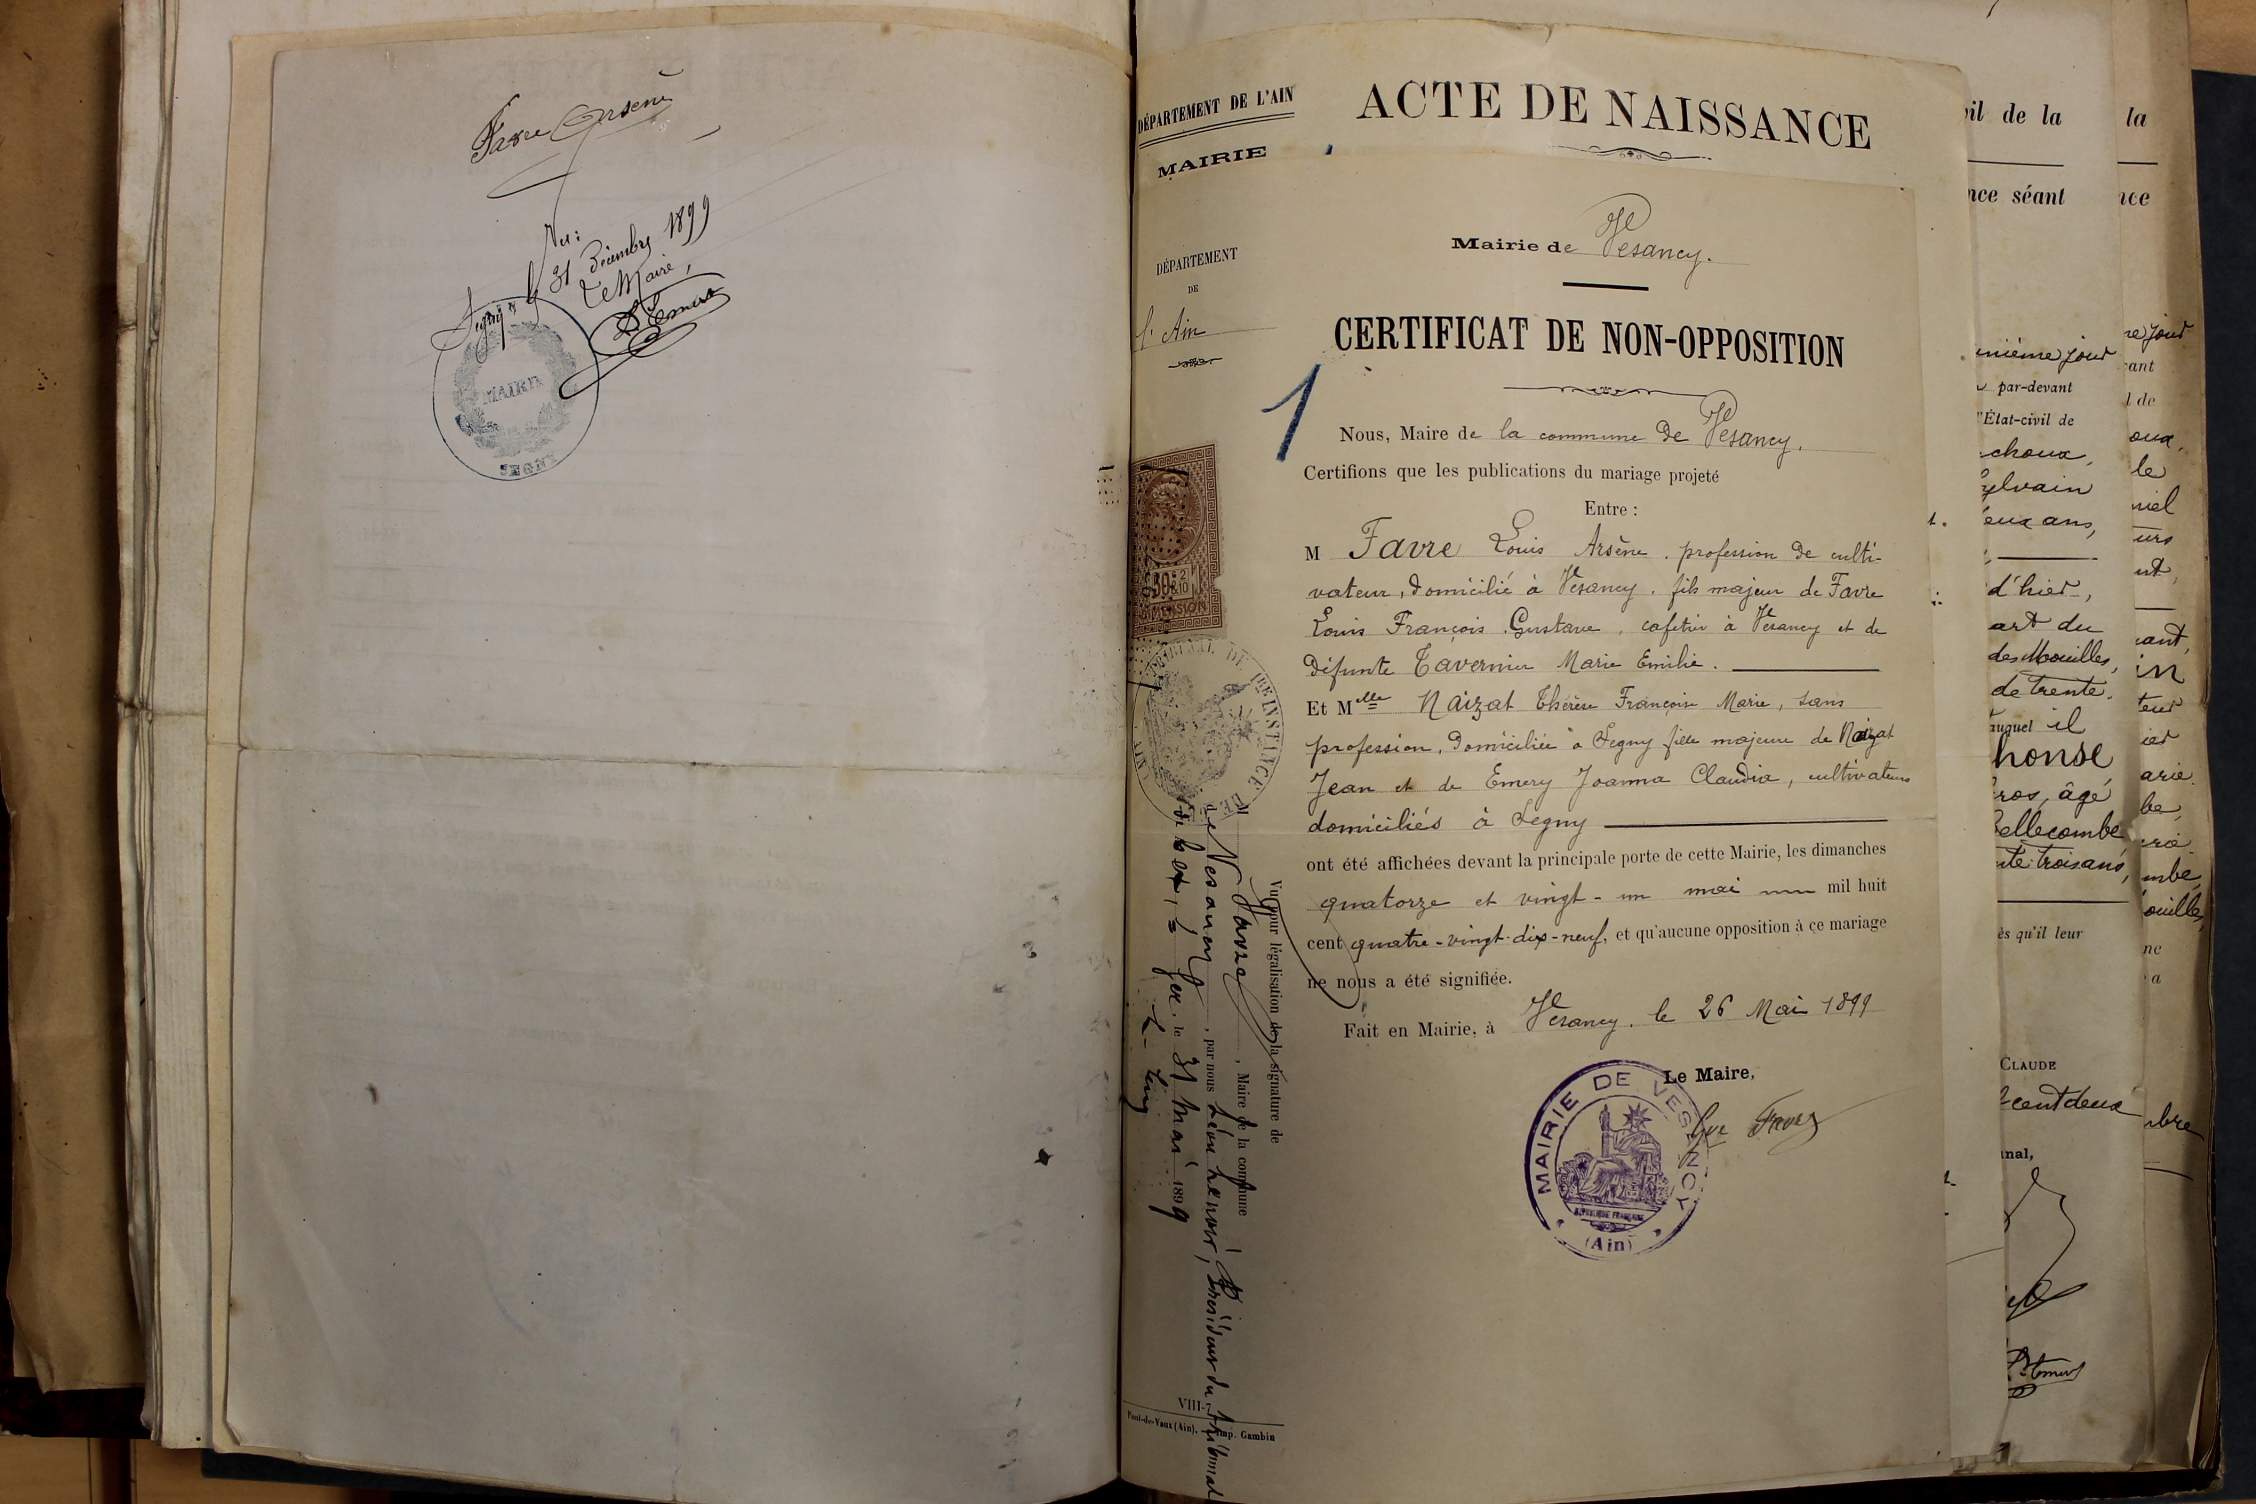 Favre Arsène
Vu:
Segny le 31 Décembre 1899
Le Maire,
MAIRIE
SEGNY
DÉPARTEMENT DE L'AIN
MAIRIE
ACTE DE NAISSANCE
DÉPARTEMENT
DE
l'Ain
Mairie de Vesancy.
CERTIFICAT DE NON-OPPOSITION
1
Nous, Maire de la commune de Vesancy.
Certifions que les publications du mariage projeté
Entre :
M Favre Louis Arsène, profession de culti-
vateur, domicilié à Vesancy, fils majeur de Favre
Louis François Gustave, cafetier à Vesancy et de
défunte Tavernier Marie Emilie.
Et Melle Naizat Thérèse Françoise Marie, sans
profession, domiciliée à Segny fille majeure de Naizat
Jean et de Emery Joanna Claudia, cultivateurs
domiciliés à Segny
ont été affichées devant la principale porte de cette Mairie, les dimanches
quatorze et vingt-un mai mil huit
cent quatre-vingt-dix-neuf, et qu'aucune opposition à ce mariage
ne nous a été signifiée.
Fait en Mairie, à Vesancy, le 26 Mai 1899
Le Maire,
Favre
MAIRIE DE VESANCY
RÉPUBLIQUE FRANÇAISE
(Ain)
TRIBUNAL DE 1RE INSTANCE DE
Vu pour légalisation de la signature de
M Favre, Maire de la commune
de Vesancy, par nous Léon, Président du tribunal
Gex, le 31 Mai 1899
VIII-
Pont-de-Vaux (Ain). Imp. Gambin
vil de la
nce séant
unième jour
par-devant
l'État-civil de
choux,
Sylvain
eux ans,
d'hier,
art du
des Mouilles,
de trente
auquel il
honse
ros, âgé
Bellecombe
nte trois ans,
ès qu'il leur
CLAUDE
cent deux
unal,
la
nce
re jour
ant
l de
oux,
le
niel
urs
nt,
ant,
in
teur
ier
arie
be,
rie
mbe,
ouilles,
ne
a
mbre